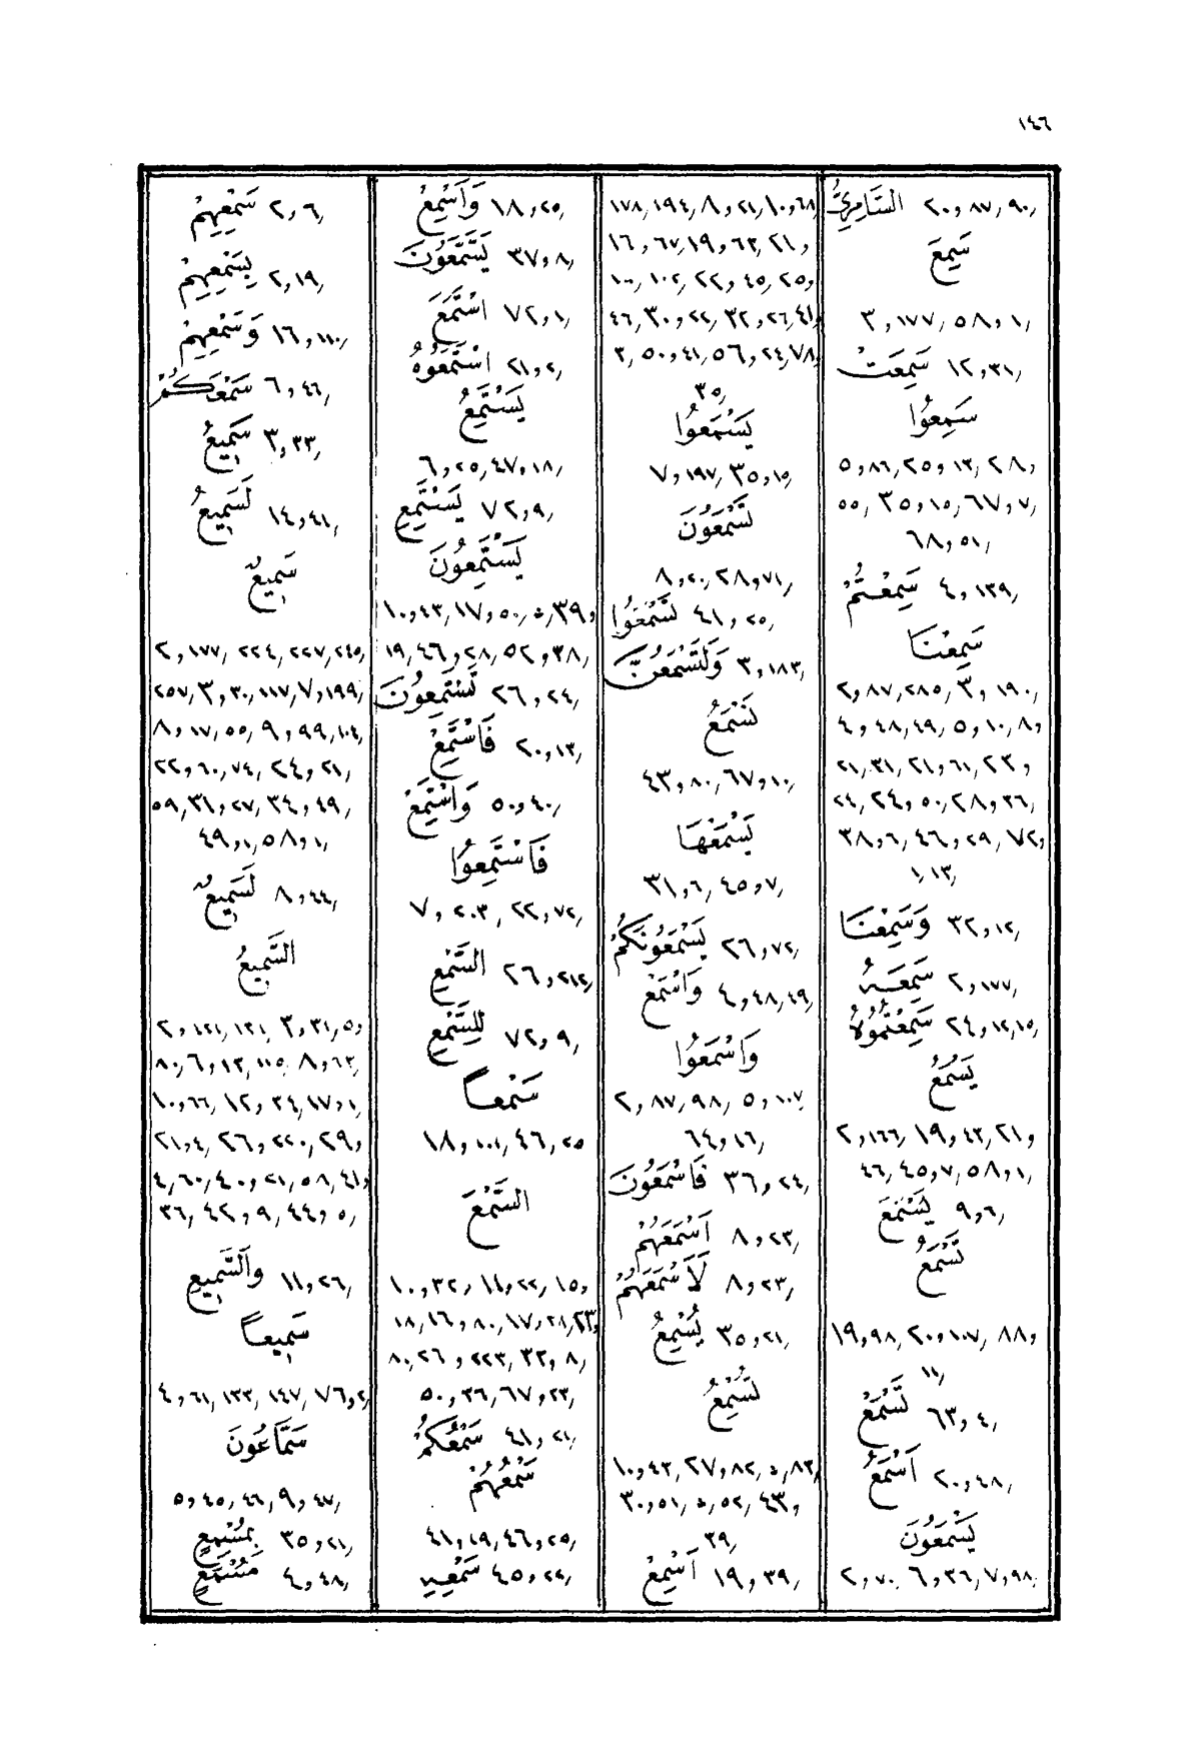 ١٤٦
السَّامِرِيُّ ٢٠, ٨٧, ٩٠,
سَمِعَ
٣, ١٧٧, ٥٨, ١,
سَمِعَتْ ١٢, ٣١,
سَمِعُوا
٥, ٨٦, ٢٥, ١٣, ٢٨,
٥٥, ٣٥, ١٥, ٦٧, ٧,
٦٨, ٥١,
سَمِعْتُمْ ٤, ١٣٩,
سَمِعْنَا
٢, ٨٧, ٢٨٥, ٣, ١٩٠,
٤, ٤٨, ٤٩, ٥, ١٠, ٨,
٢١, ٣١, ٢١, ٦١, ٢٣,
٢٤, ٢٤, ٥٠, ٢٨, ٣٦,
٣٨, ٦, ٤٦, ٢٩, ٧٢,
١, ١٣,
وَسَمِعْنَا ٣٢, ١٢,
سَمِعَهُ ٢, ١٧٧,
سَمِعْتُمُوهُ ٢٤, ١٢, ١٥,
يَسْمَعُ
٢, ١٦٦, ١٩, ٤٣, ٢١,
٤٦, ٤٥, ٧, ٥٨, ١,
يَسْمَعَ ٩, ٦,
تَسْمَعُ
١٩, ٩٨, ٢٠, ١٠٧, ٨٨,
١١,
تَسْمَعْ ٦٣, ٤,
أَسْمَعُ ٢٠, ٤٨,
يَسْمَعُونَ
٢, ٧٠, ٦, ٣٦, ٧, ٩٨,
١٧٨, ١٩٤, ٨, ٢١, ١٠, ٦٨,
١٦, ٦٧, ١٩, ٦٣, ٢١,
١٠٠, ١٠٢, ٢٢, ٤٥, ٢٥,
٤٦, ٣٠, ٢٢, ٣٢, ٢٦, ٤١,
٣, ٥٠, ٤١, ٥٦, ٢٤, ٧٨,
٣٥,
يَسْمَعُوا
٧, ١٩٧, ٣٥, ١٥,
تَسْمَعُونَ
٨, ٢٠, ٢٨, ٧١,
تَسْمَعُوا ٤١, ٢٥,
وَلَتَسْمَعُنَّ ٣, ١٨٣,
نَسْمَعُ
٤٣, ٨٠, ٦٧, ١٠,
يَسْمَعْهَا
٣١, ٦, ٤٥, ٧,
يَسْمَعُونَكُمْ ٢٦, ٧٢,
وَاسْمَعْ ٤, ٤٨, ٤٩,
وَاسْمَعُوا
٢, ٨٧, ٩٨, ٥, ١٠٧,
٦٤, ١٦,
فَاسْمَعُونَ ٣٦, ٢٤,
أَسْمَعَهُمْ ٨, ٢٣,
لَأَسْمَعَهُمْ ٨, ٢٣,
يُسْمِعُ ٣٥, ٢١,
تُسْمِعُ
١٠, ٤٣, ٢٧, ٨٢, ٥, ٨٣,
٣٠, ٥١, ٥, ٥٢, ٤٣,
٣٩,
أَسْمِعْ ١٩, ٣٩,
وَأَسْمِعْ ١٨, ٢٥,
يَسَّمَّعُونَ ٣٧, ٨,
اسْتَمَعَ ٧٢, ١,
اسْتَمَعُوهُ ٢١, ٢,
يَسْتَمِعُ
٦, ٢٥, ٤٧, ١٨,
يَسْتَمِعِ ٧٢, ٩,
يَسْتَمِعُونَ
١٠, ٤٣, ١٧, ٥٠, ٥, ٣٩,
١٩, ٤٦, ٢٨, ٥٢, ٣٨,
تَسْتَمِعُونَ ٢٦, ٢٤,
فَاسْتَمِعْ ٢٠, ١٣,
وَاسْتَمِعْ ٥٠, ٤٠,
فَاسْتَمِعُوا
٧, ٢٠٣, ٢٢, ٧٢,
السَّمْعِ ٢٦, ٢١٢,
لِلسَّمْعِ ٧٢, ٩,
سَمْعاً
١٨, ١٠١, ٤٦, ٢٥
السَّمْعَ
١٠, ٣٢, ١١, ٢٢, ١٥,
١٨, ١٦, ٨٠, ١٧, ٢٨, ٢٣,
٨٠, ٢٦, ٢٢٣, ٣٢, ٨,
٥٠, ٣٦, ٦٧, ٢٣,
سَمْعُكُمْ ٤١, ٢١,
سَمْعُهُمْ
٤١, ١٩, ٤٦, ٢٥,
سَمْعِهِ ٤٥, ٢٢,
سَمْعِهِمْ ٢, ٦,
بِسَمْعِهِمْ ٢, ١٩,
وَسَمْعِهِمْ ١٦, ١١٠,
سَمْعَكُمْ ٦, ٤٦,
سَمِيعُ ٣, ٣٣,
لَسَمِيعُ ١٤, ٤١,
سَمِيعٌ
٢, ١٧٧, ٢٢٤, ٢٢٧, ٢٤٥,
٢٥٧, ٣, ٣٠, ١١٧, ٧, ١٩٩,
٨, ١٧, ٥٥, ٩, ٩٩, ١٠٤,
٢٢, ٦٠, ٧٤, ٢٤, ٢١,
٥٩, ٣١, ٢٧, ٣٤, ٤٩,
٤٩, ١, ٥٨, ١,
لَسَمِيعٌ ٨, ٤٤,
السَّمِيعُ
٢, ١٢١, ١٣١, ٣, ٣١, ٥,
٨٠, ٦, ١٣, ١١٥, ٨, ٦٣,
١٠, ٦٦, ١٢, ٣٤, ١٧, ١,
٢١, ٤, ٢٦, ٢٢٠, ٢٩,
٤, ٦٠, ٤٠, ٢١, ٥٨, ٤١,
٣٦, ٤٢, ٩, ٤٤, ٥,
وَالسَّمِيعِ ١١, ٢٦,
سَمِيعاً
٤, ٦١, ١٣٣, ١٤٧, ٧٦, ٢,
سَمَّاعُونَ
٥, ٤٥, ٤٦, ٩, ٤٧,
بِمُسْمِعٍ ٣٥, ٢١,
مُسْمَعٍ ٤, ٤٨,